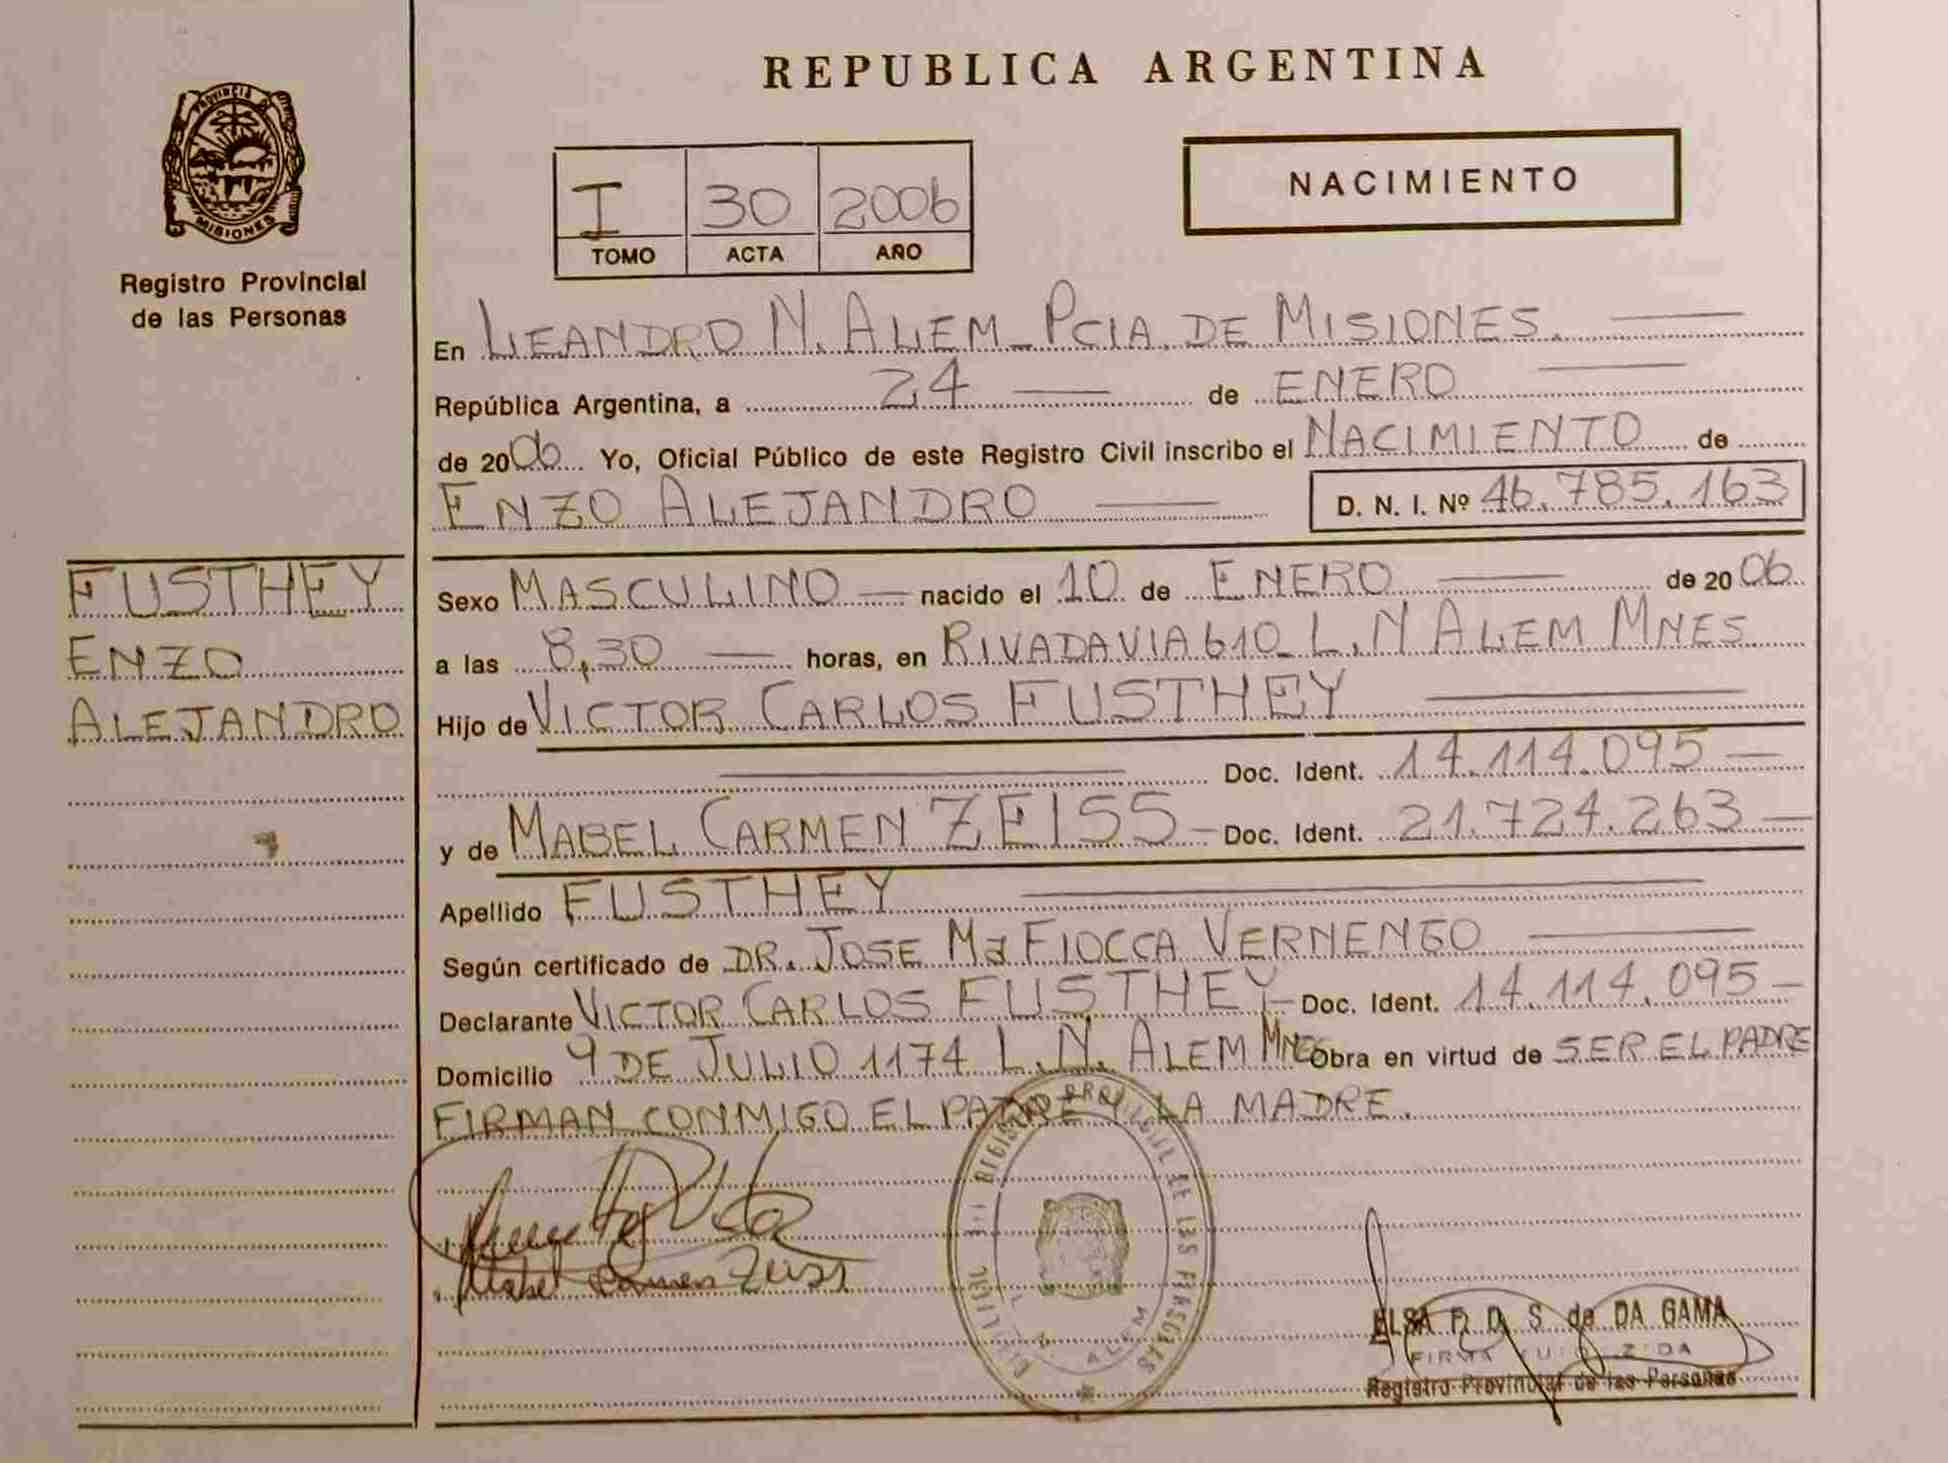 REPUBLICA ARGENTINA
PROVINCIA DE
MISIONES
Registro Provincial
de las Personas
I 30 2006
TOMO ACTA AÑO
NACIMIENTO
En LEANDRO N. ALEM - PCIA. DE MISIONES.
República Argentina, a 24 de ENERO
de 2006 Yo, Oficial Público de este Registro Civil inscribo el NACIMIENTO de
ENZO ALEJANDRO D. N. I. Nº 46.785.163
FUSTHEY
ENZO
ALEJANDRO
Sexo MASCULINO nacido el 10 de ENERO de 2006
a las 8,30 horas, en RIVADAVIA 610 L.N ALEM MNES
Hijo de VICTOR CARLOS FUSTHEY
Doc. Ident. 14.114.095
y de MABEL CARMEN ZEISS Doc. Ident. 21.724.263
Apellido FUSTHEY
Según certificado de DR. JOSE Mª FIOCCA VERNENGO
Declarante VICTOR CARLOS FUSTHEY Doc. Ident. 14.114.095
Domicilio 9 DE JULIO 1174 L.N. ALEM MNES Obra en virtud de SER EL PADRE
FIRMAN CONMIGO EL PADRE Y LA MADRE.
Mabel Carmen Zeiss
REGISTRO PROVINCIAL DE LAS PERSONAS
ALEM
ELSA F. D. S. de DA GAMA
FIRMA
Registro Provincial de las Personas